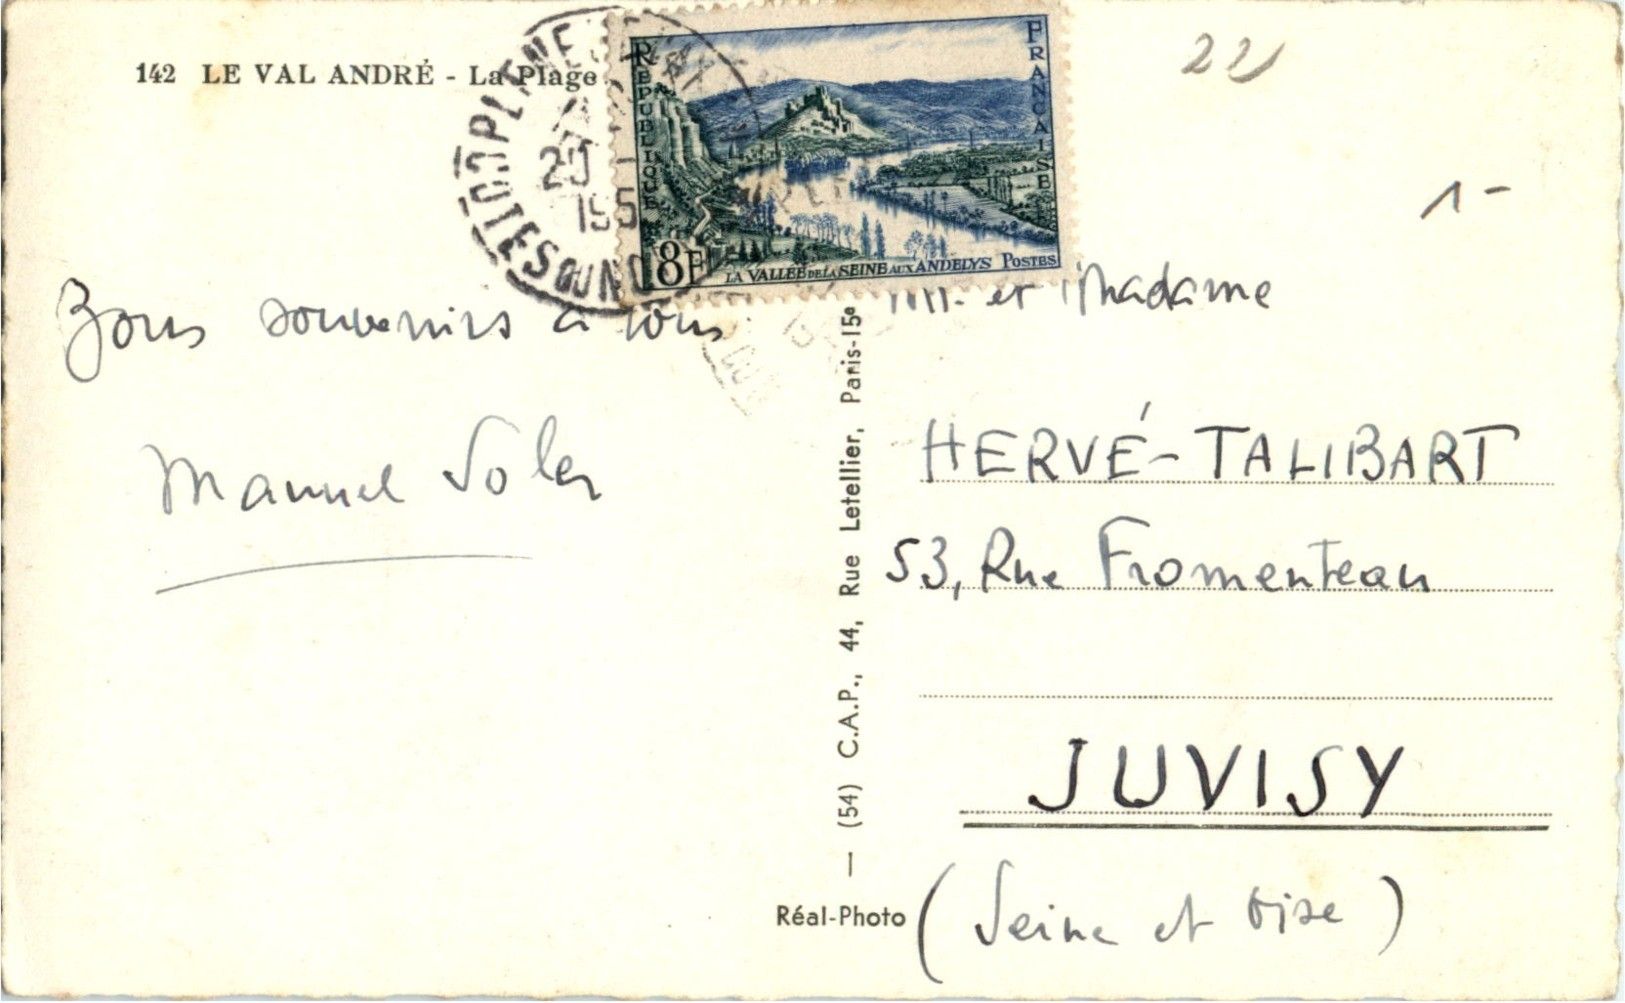 142 LE VAL ANDRÉ - La Plage
RÉPUBLIQUE
FRANÇAISE
8F
LA VALLÉE DE LA SEINE AUX ANDELYS POSTES
PLENEUF
20
195
CÔTES DU NORD
22
1-
Bons souvenirs à tous
Manuel Soler
— (54) C.A.P., 44, Rue Letellier, Paris-15e
Réal-Photo
M. et Madame
HERVÉ-TALIBART
53, Rue Fromenteau
JUVISY
(Seine et Oise)